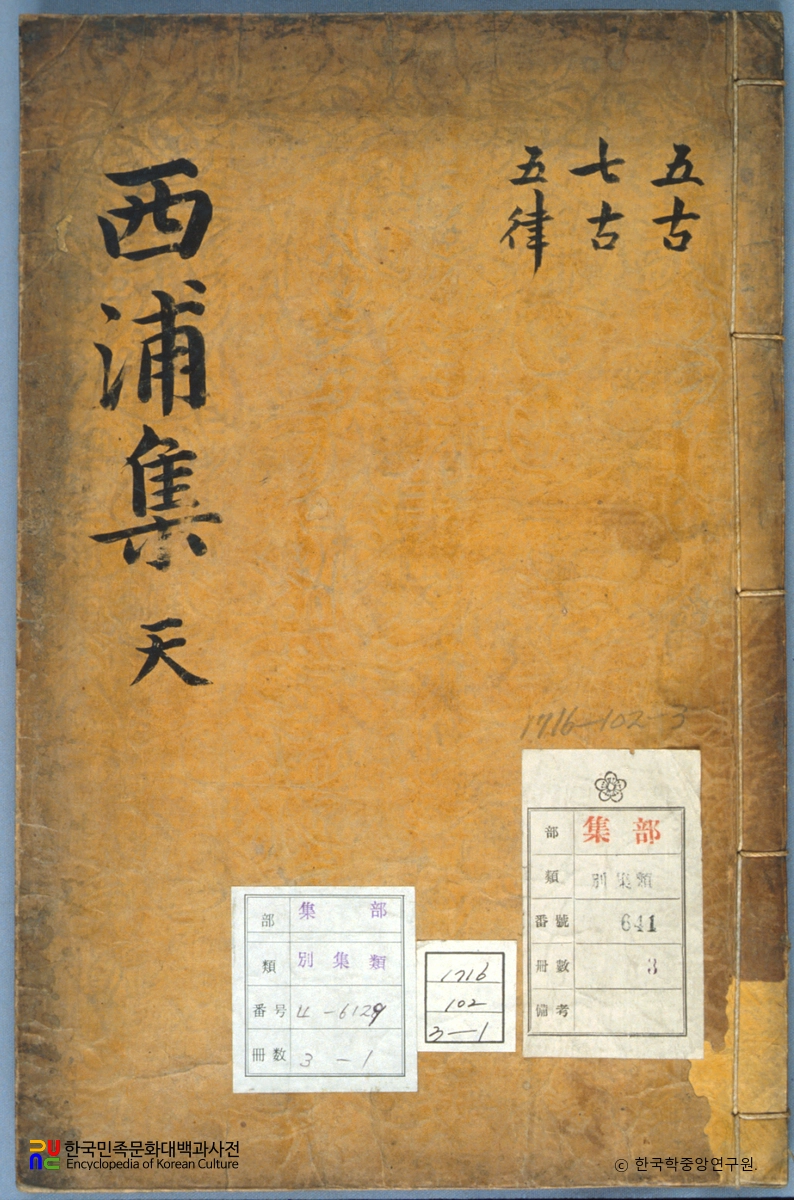 西浦集 天
五古
七古
五律
1716-102-3
部 集部
類 別集類
番號 641
冊數 3
備考
部 集部
類 別集類
番号 4-6129
冊数 3-1
1716
102
3-1
한국민족문화대백과사전
Encyclopedia of Korean Culture
ⓒ 한국학중앙연구원.